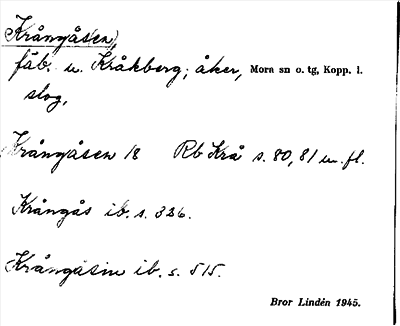 Krångåsen,
fäb. u. Kråkberg; åker, Mora sn o. tg, Kopp. l.
slog,
Krångåsen 18 Rb Krå s. 80, 81 m.fl.
Krångås ib. s. 326.
Krångåsin ib. s. 515.
Bror Lindén 1945.